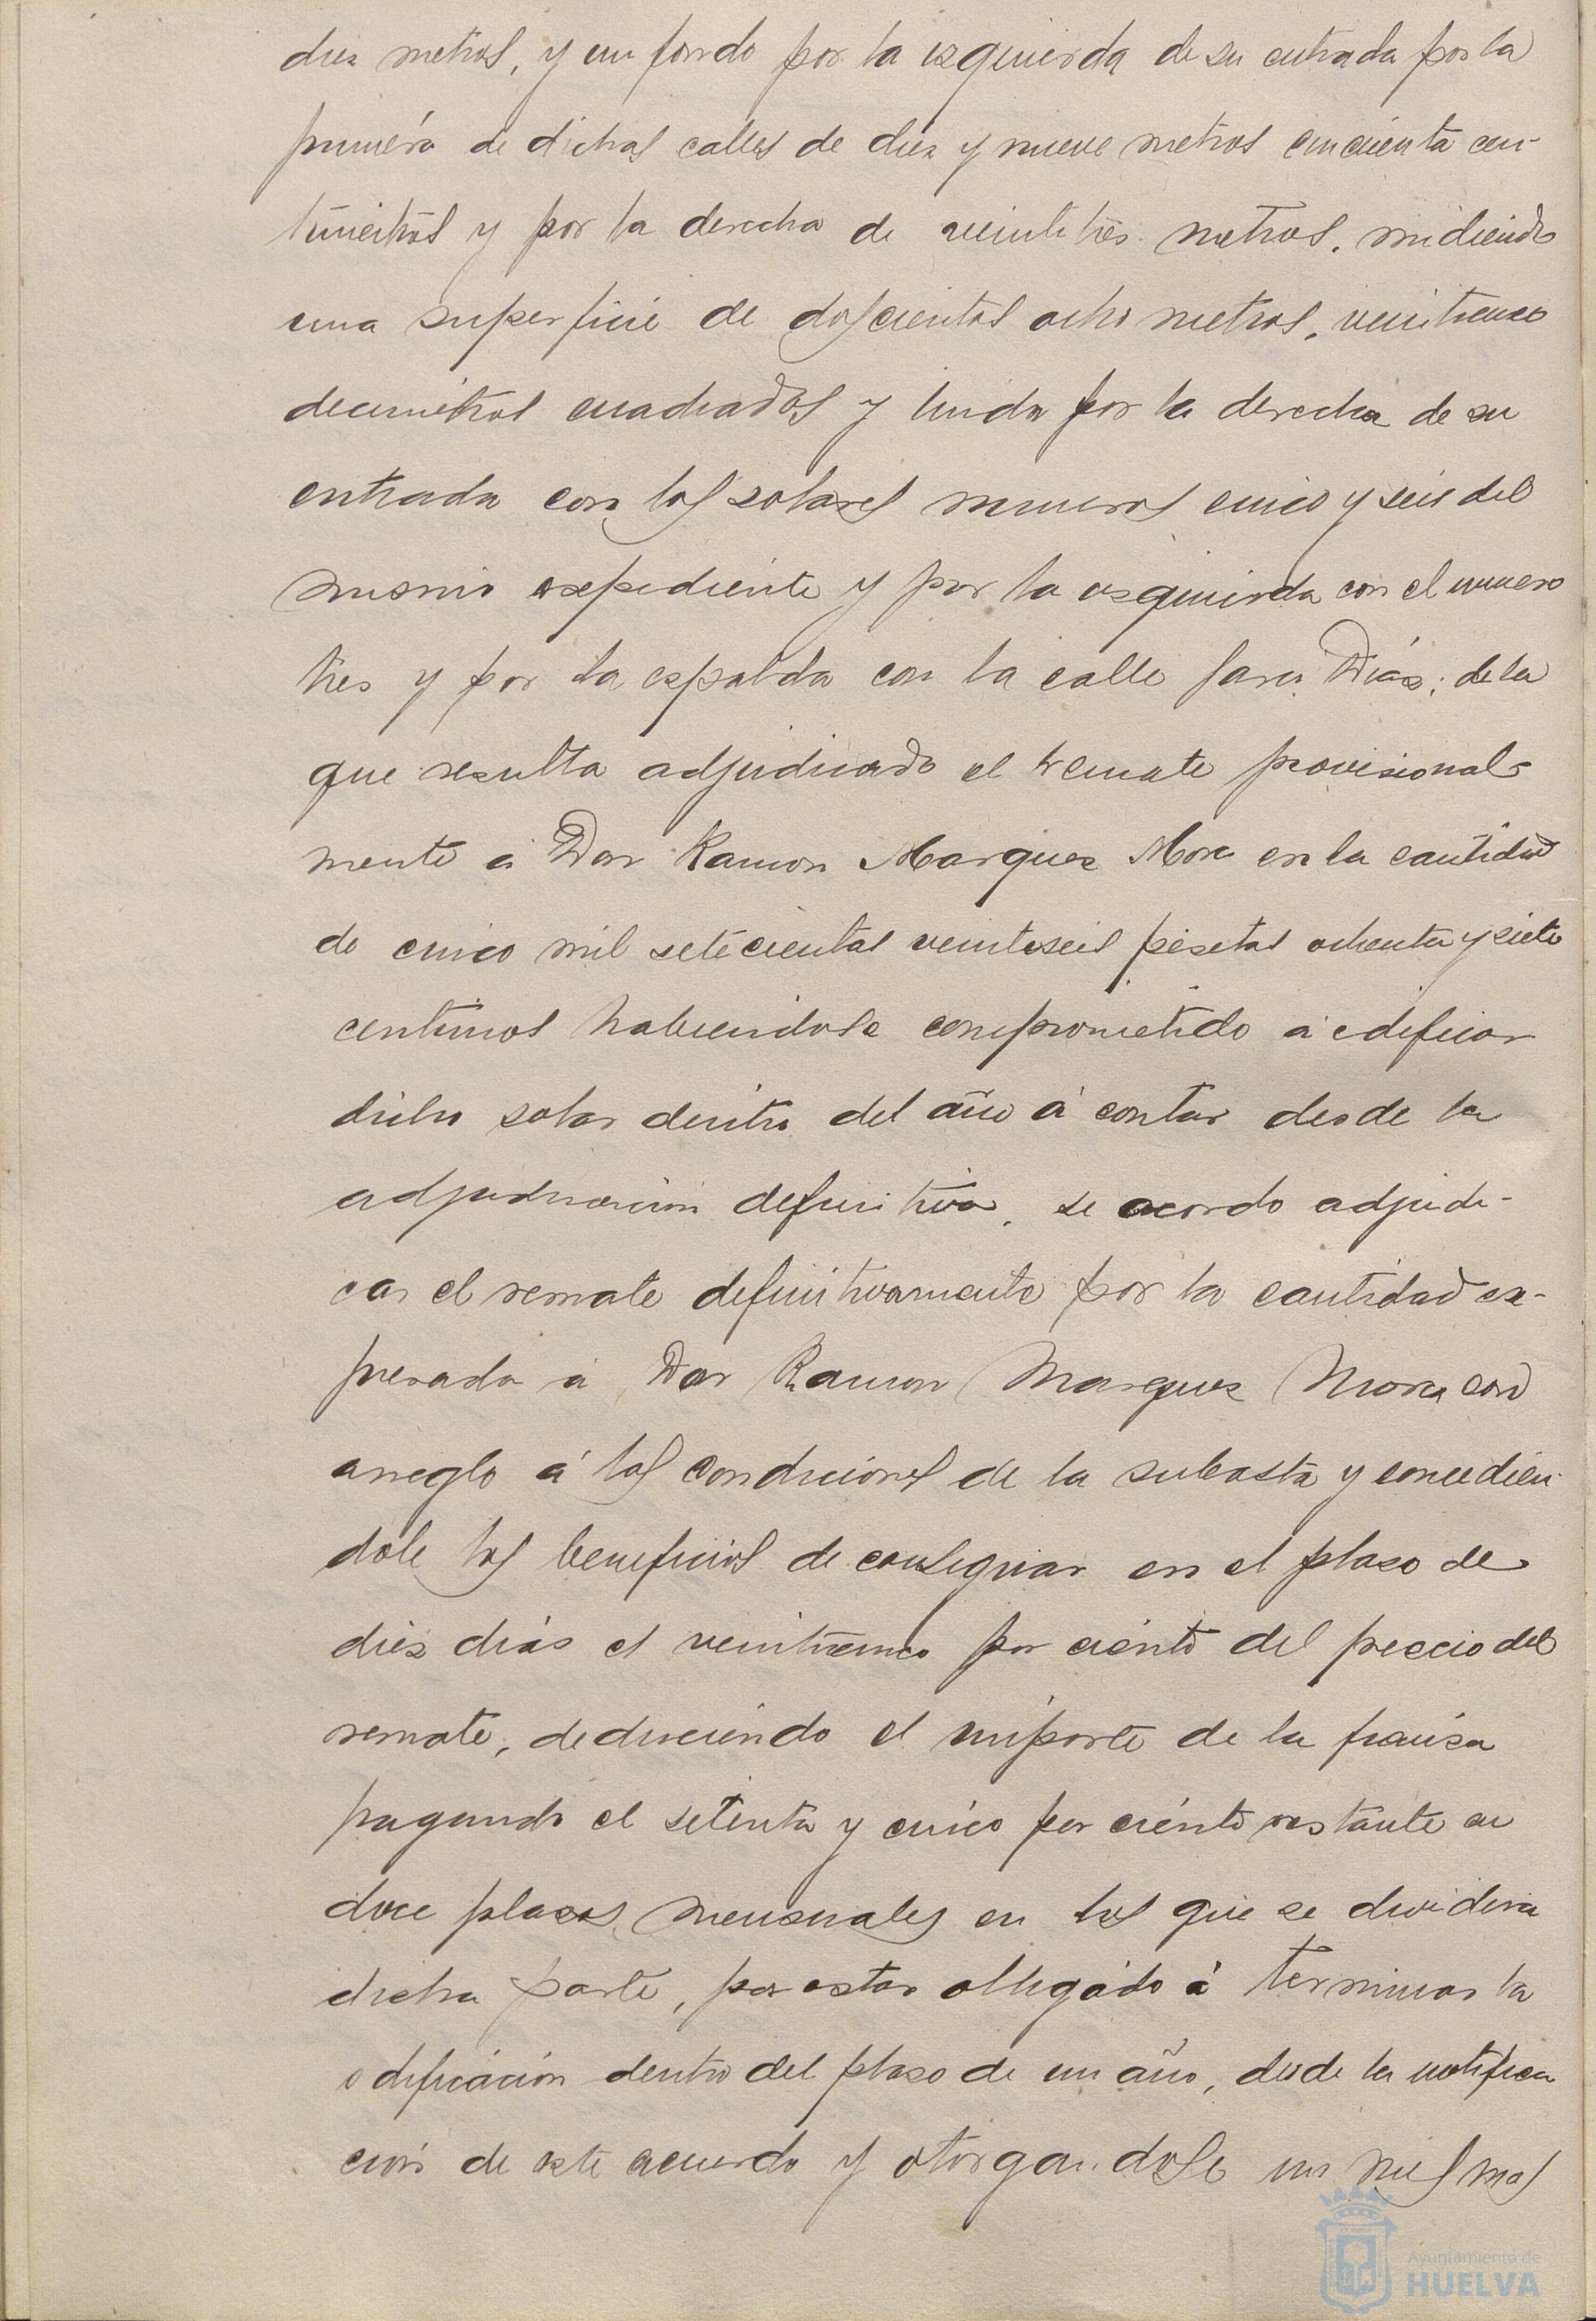 diez metros, y un fondo por la izquierda de su entrada por la
primera de dichas calles de diez y nueve metros cincuenta cen-
timetros y por la derecha de veintitres metros, midiendo
una superficie de doscientos ocho metros, veinticinco
decimetros cuadrados y linda por la derecha de su
entrada con los solares numeros cinco y seis del
mismo expediente y por la izquierda con el numero
tres y por la espalda con la calle Díaz; de la
que resulta adjudicado el remate provisional-
mente á Don Ramon Marquez Mora en la cantidad
de cinco mil setecientas veintiseis pesetas ochenta y siete
centimos habiendose comprometido á edificar
dicho solar dentro del año á contar desde la
adjudicacion definitiva, se acordo adjudi-
car el remate definitivamente por la cantidad ex-
presada á Don Ramon Marquez Mora con
arreglo á las condiciones de la subasta y concedien
dole los beneficios de consignar en el plazo de
diez dias el veinticinco por ciento del precio del
remate, deduciendo el importe de la fianza
pagando el setenta y cinco por ciento restante en
doce plazos mensuales en los que se dividira
dicha parte, por estar obligado á terminar la
edificación dentro del plazo de un año, desde la notifica
ción de este acuerdo y otorgandose un mes mas
Ayuntamiento de
HUELVA